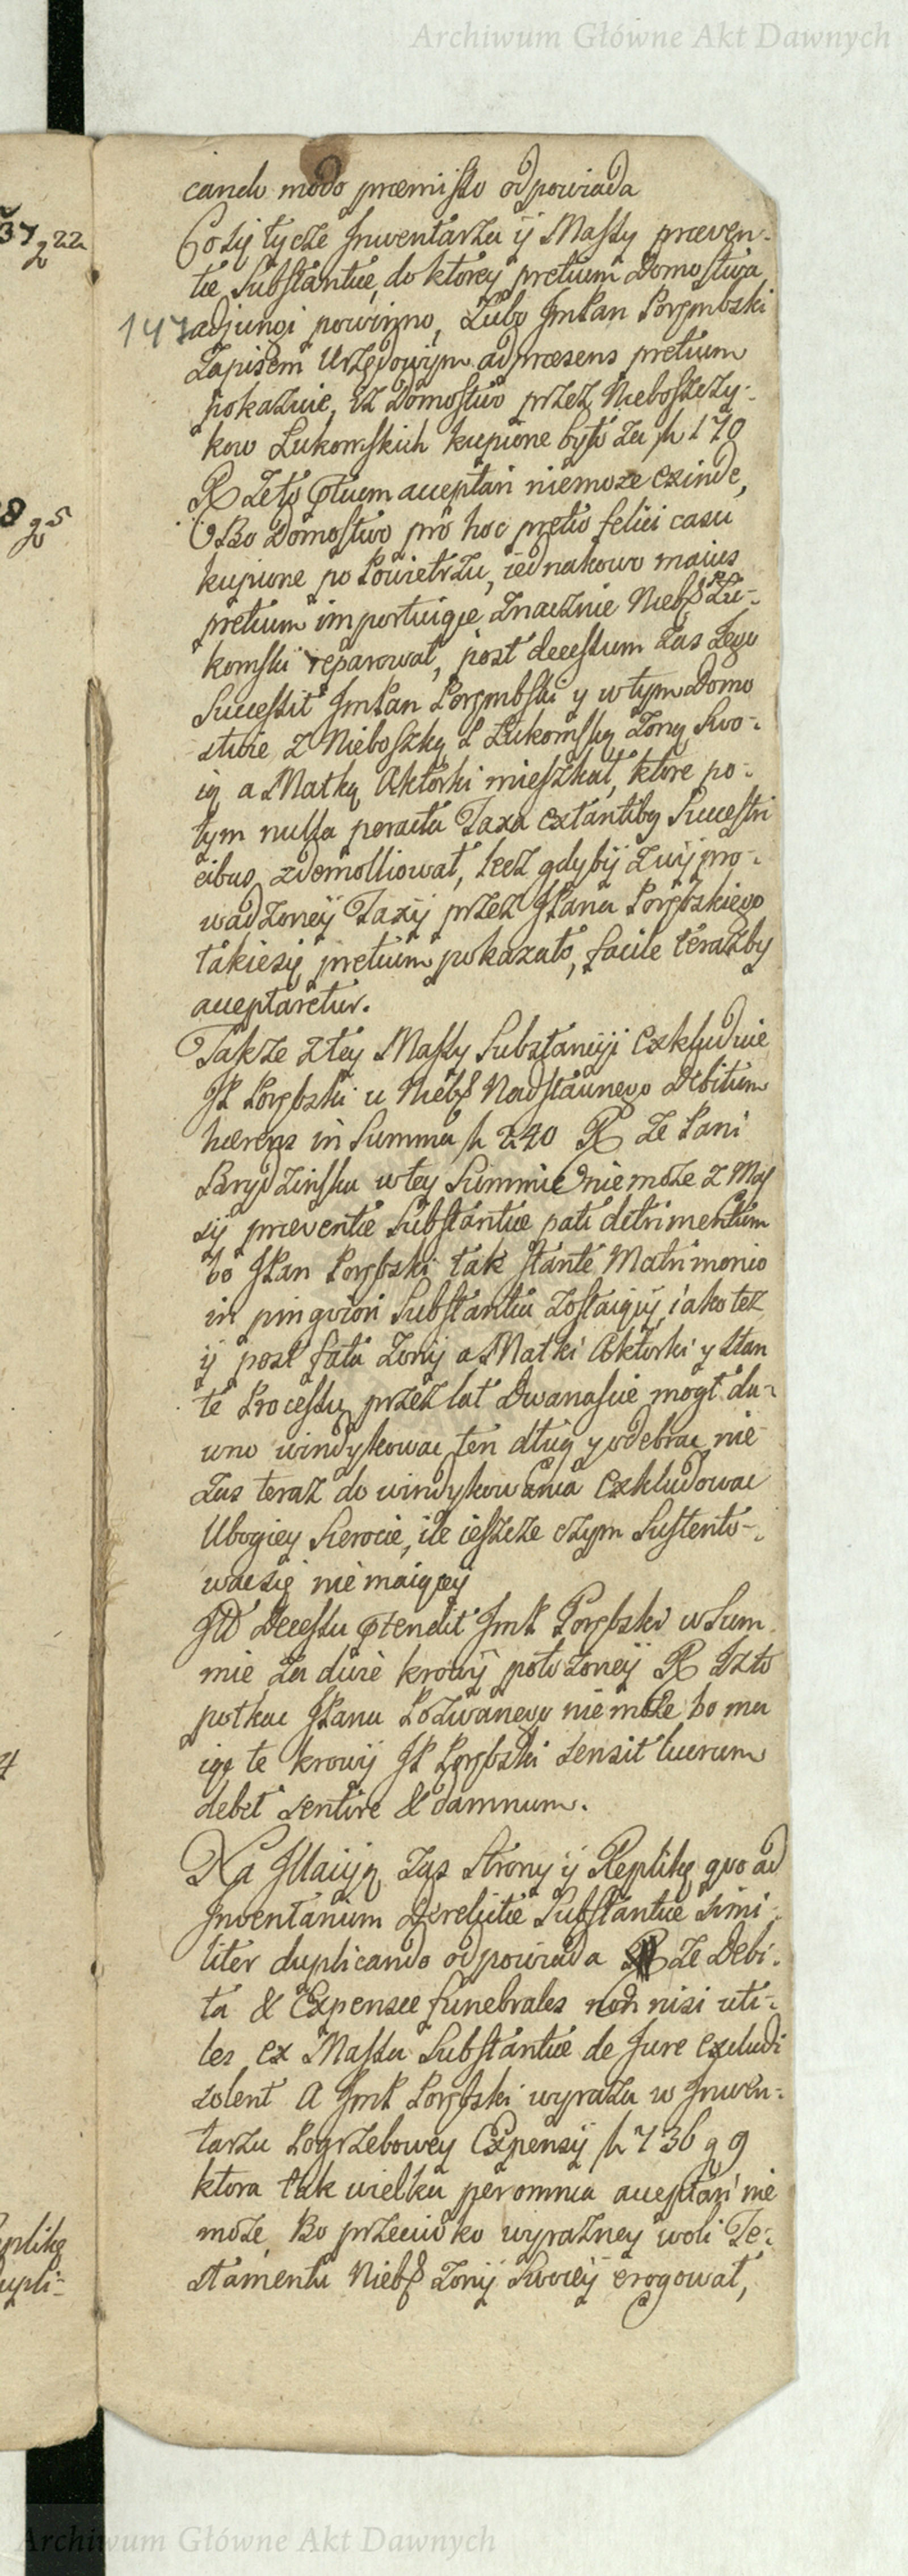 Archiwum Główne Akt Dawnych
cando modo præmisso odpowiada
Co się tycze Inwentarza y Massy præven-
tæ Substantiæ, do ktorey pretium Domostwa
147 adjungi powinno, Lubo ImPan Porębski
Zapisem Urzędowym ad præsens pretium
pokazuie, iż Domostwo przez Nieboszczy-
kow Lukomskich kupione było za fl 170
R Że to acceptari niemoże exinde,
Bo Domostwo pro hoc pretio felici casu
kupione po Powietrzu, iednakowo maius
pretium importuiące znacznie Niebs P Lu-
komski reparował, post decessum zas Iego
Successit ImPan Porębski y w tym Domo
stwie z Nieboszką P Lukomską Zoną Swo-
ią a Matką Aktorki mieszkał, ktore po-
tym nulla peracta Taxa extantibus Succestri
cibus, zdemolliował, lecz gdyby z wypro-
wadzoney Taxy przez JPana Porębskiego
takie się pretium pokazało, facile terazby
acceptaretur.
Takze z tey Massy Substancyi Exkluduie
JP Porębski u Niebs Nadstawnego Debitum
hærens in Summa fl 240 R Ze Pani
Brydzinska w tey Summie niemoże z Mas
sy præventæ Substantiæ pati detrimentum
bo JPan Porębski tak stante Matrimonio
in pingviori Substantia zostaiąc, iako tez
y post fata Zony a Matki Aktorki y stan
te Processu przez lat Dwanascie mogł da-
wno windykowac ten dług y odebrac nie
zas teraz do windykowania Exkludowac
Ubogiey Sierocie, ile ieszcze czym Sustento-
wac się nie maiącey
Ad Decessu ostendit ImP Porębski w Sum
mie za dwie krowy położoney R Iż to
potkac JPana Pozwanego nie może bo ma
iąc te krowy JP Porębski sensit lucrum
debet sentire & damnum.
Na Illaiyą zas Strony y Replikę quo ad
Inventarium derelictæ Substantiæ simi-
liter duplicando odpowiada R Ze Debi-
ta & Expensæ funebrales non nisi uti-
les ex Massa Substantiæ de Jure excludi
solent A ImP Porębski wyraża w Inwen-
tarzu Pogrzebowey Expensy fl 736 g 9
ktora tak wielka per omnia acceptari nie
może, Bo przeciwko wyrazney woli Te-
stamentu Niebs Zony Swoiey erogował,
37 g 22
8 g 5
eplikę
upli-
Archiwum Główne Akt Dawnych